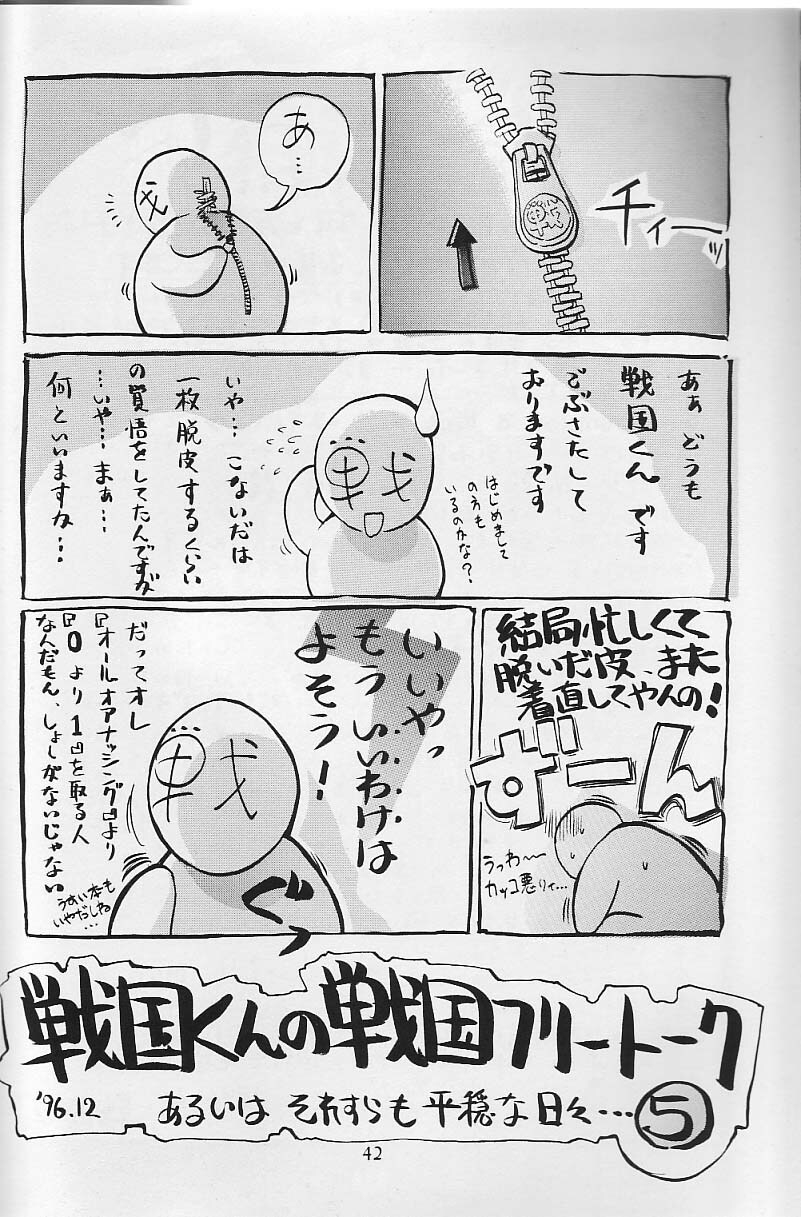 チィーッ
あ…
戦
あぁ どうも
戦国くん です
ごぶさたして
おりますです
はじめまして
の方も
いるのかな？
いや… こないだは
一枚脱皮するくらい
の覚悟をしてたんですが
…いや… まぁ…
何といいますか…
結局忙しくて
脱いだ皮、また
着直してやんの！
ずーん
うっわ〜〜
カッコ悪りィ…
いいやっ
もう いいわけは
よそう！
だってオレ
『オールオアナッシング』より
『0より1』を取る人
なんだもん、しょうがないじゃない
うすい本も
いやだしね…
ぐっ
戦国くんの戦国フリートーク
'96.12 あるいは それすらも 平穏な日々… ⑤
42